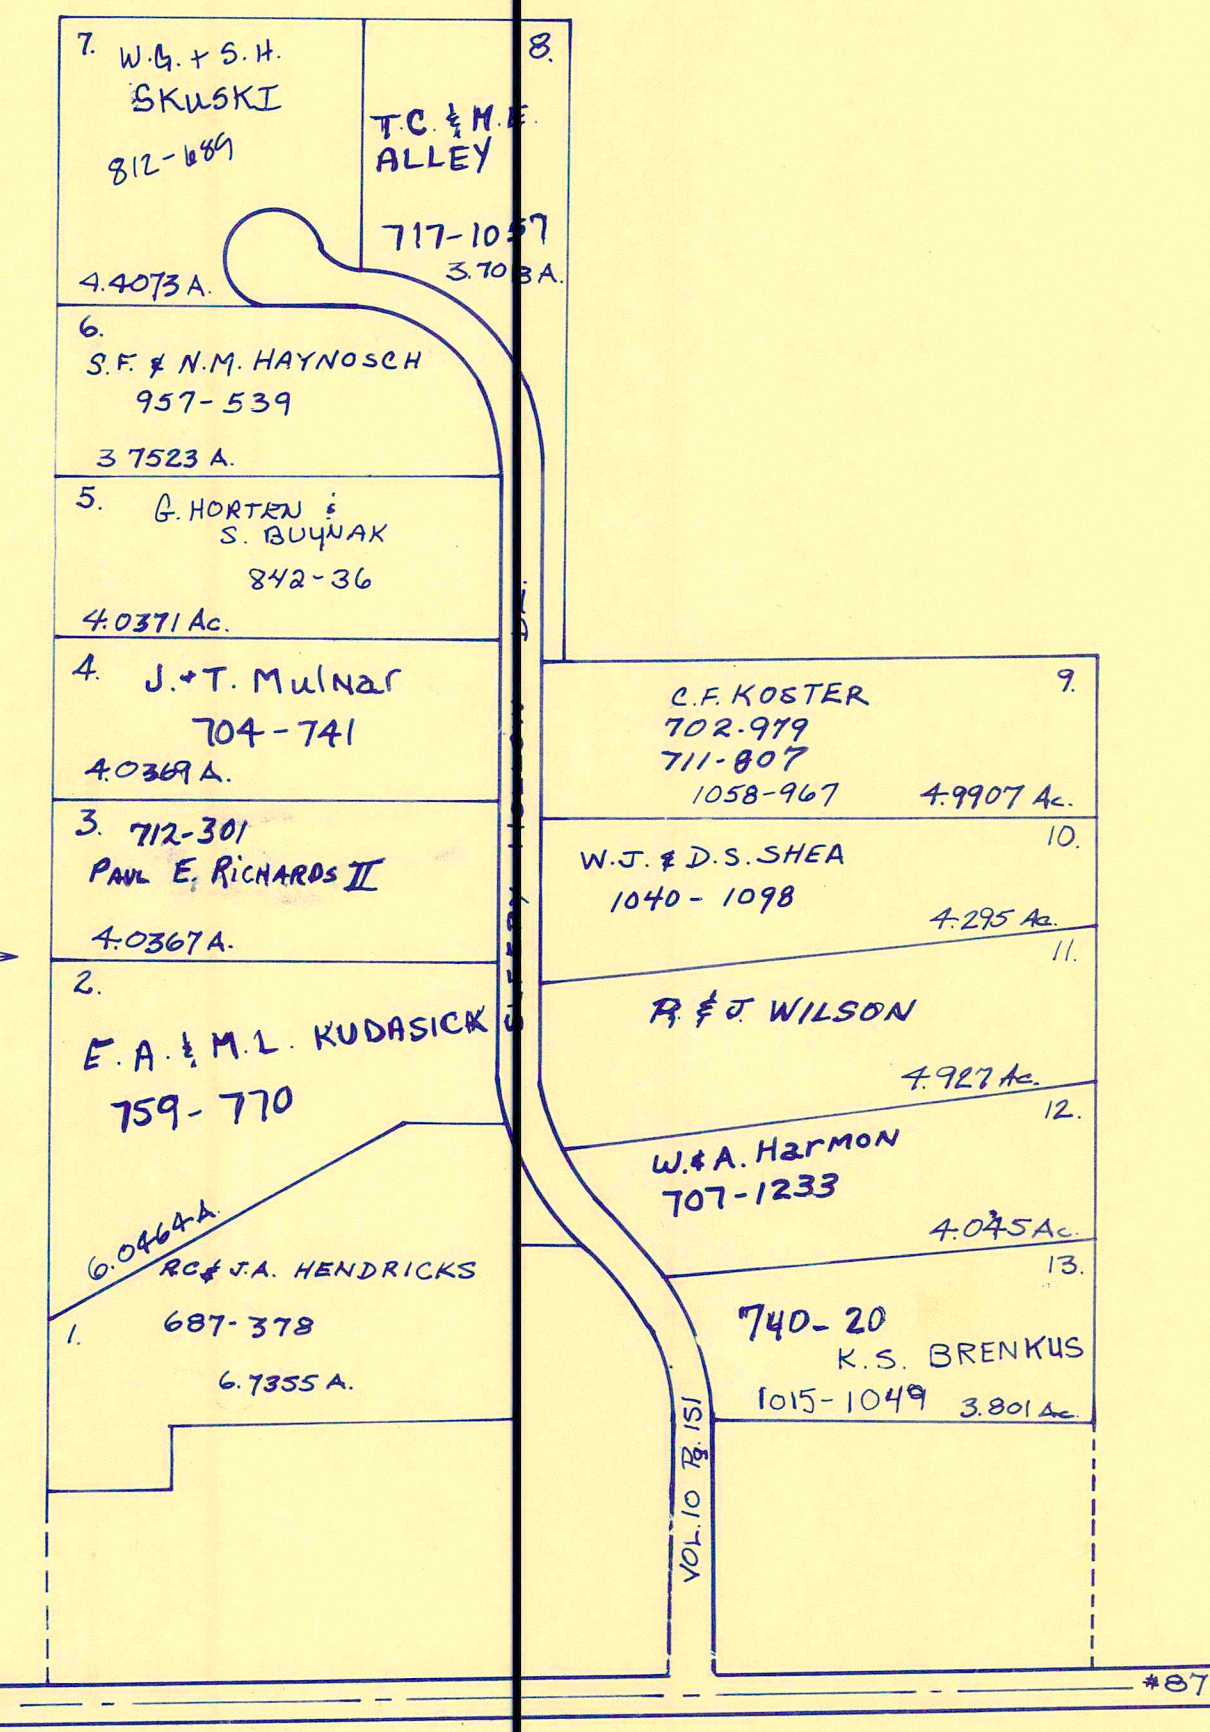 7.
W.G. + S.H.
SKUSKI
812-689
4.4073 A.
8.
T.C. & M.E.
ALLEY
717-1057
3.703 A.
6.
S.F. & N.M. HAYNOSCH
957-539
3 7523 A.
5.
G. HORTEN &
S. BUYNAK
842-36
4.0371 Ac.
4.
J. + T. Mulnar
704-741
4.0369 A.
3.
712-301
PAUL E. RICHARDS II
4.0367 A.
2.
E.A. & M.L. KUDASICK
759-770
6.0464 A.
1.
R.C. & J.A. HENDRICKS
687-378
6.7355 A.
SLEEPY HOLLOW DR.
9.
C.F. KOSTER
702-979
711-807
1058-967
4.9907 Ac.
10.
W.J. & D.S. SHEA
1040-1098
4.295 Ac.
11.
R. & J. WILSON
4.927 Ac.
12.
W. & A. Harmon
707-1233
4.045 Ac.
13.
740-20
K.S. BRENKUS
1015-1049
3.801 Ac.
VOL. 10 Pg. 151
#87